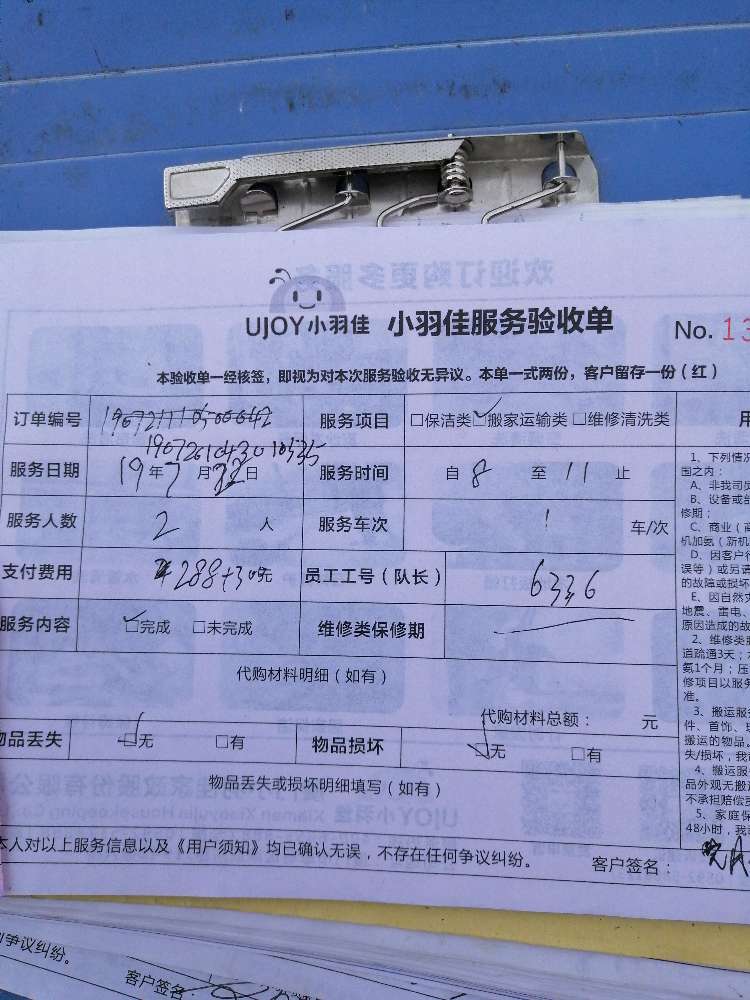 UJOY小羽佳 小羽佳服务验收单 No. 13
本验收单一经核签，即视为对本次服务验收无异议。本单一式两份，客户留存一份（红）
订单编号 服务项目 □保洁类 ☑搬家运输类 □维修清洗类
服务日期 19年7月22日 服务时间 自8至11止
服务人数 2人 服务车次 1车/次
支付费用 288+30元 员工工号（队长） 6336
服务内容 ☑完成 □未完成 维修类保修期
代购材料明细（如有）
代购材料总额： 元
物品丢失 ☑无 □有 物品损坏 ☑无 □有
物品丢失或损坏明细填写（如有）
本人对以上服务信息以及《用户须知》均已确认无误，不存在任何争议纠纷。 客户签名：
用
1、下列情况
围之内：
A、非我司
B、设备或
修期；
C、商业（
机加氨（新机
D、因客户
误等）或另请
的故障或损坏
E、因自然
地震、雷电、
原因造成的故
2、维修类
道疏通3天；
氨1个月；压
修项目以服务
准。
3、搬运服
件、首饰、
搬运的物品。
失/损坏，我
4、搬运服
品外观无搬
不承担赔偿
5、家庭保
48小时，我
争议纠纷。
客户签名：